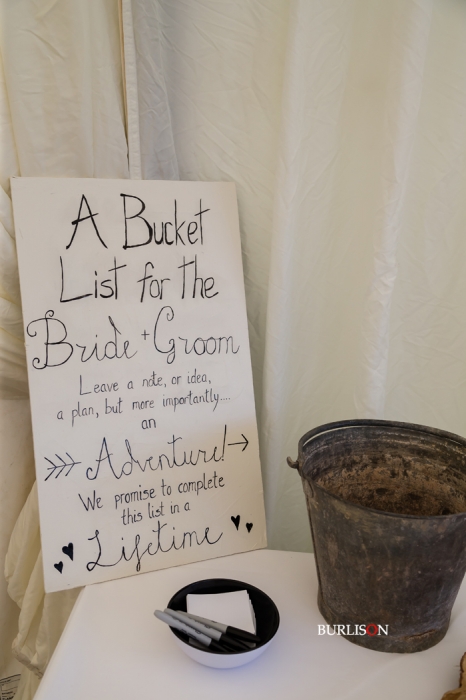 A Bucket
List for the
Bride + Groom
Leave a note, or idea,
a plan, but more importantly....
an
Adventure!
We promise to complete
this list in a
Lifetime
BURLISON